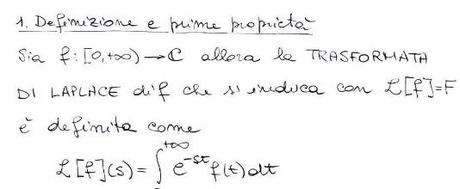 1. Definizione e prime proprietà
Sia f: [0,+∞) → ℂ allora la TRASFORMATA
DI LAPLACE di f che si indica con ℒ[f]=F
è definita come
ℒ[f](s) = ∫^{+∞} e^{-st} f(t) dt